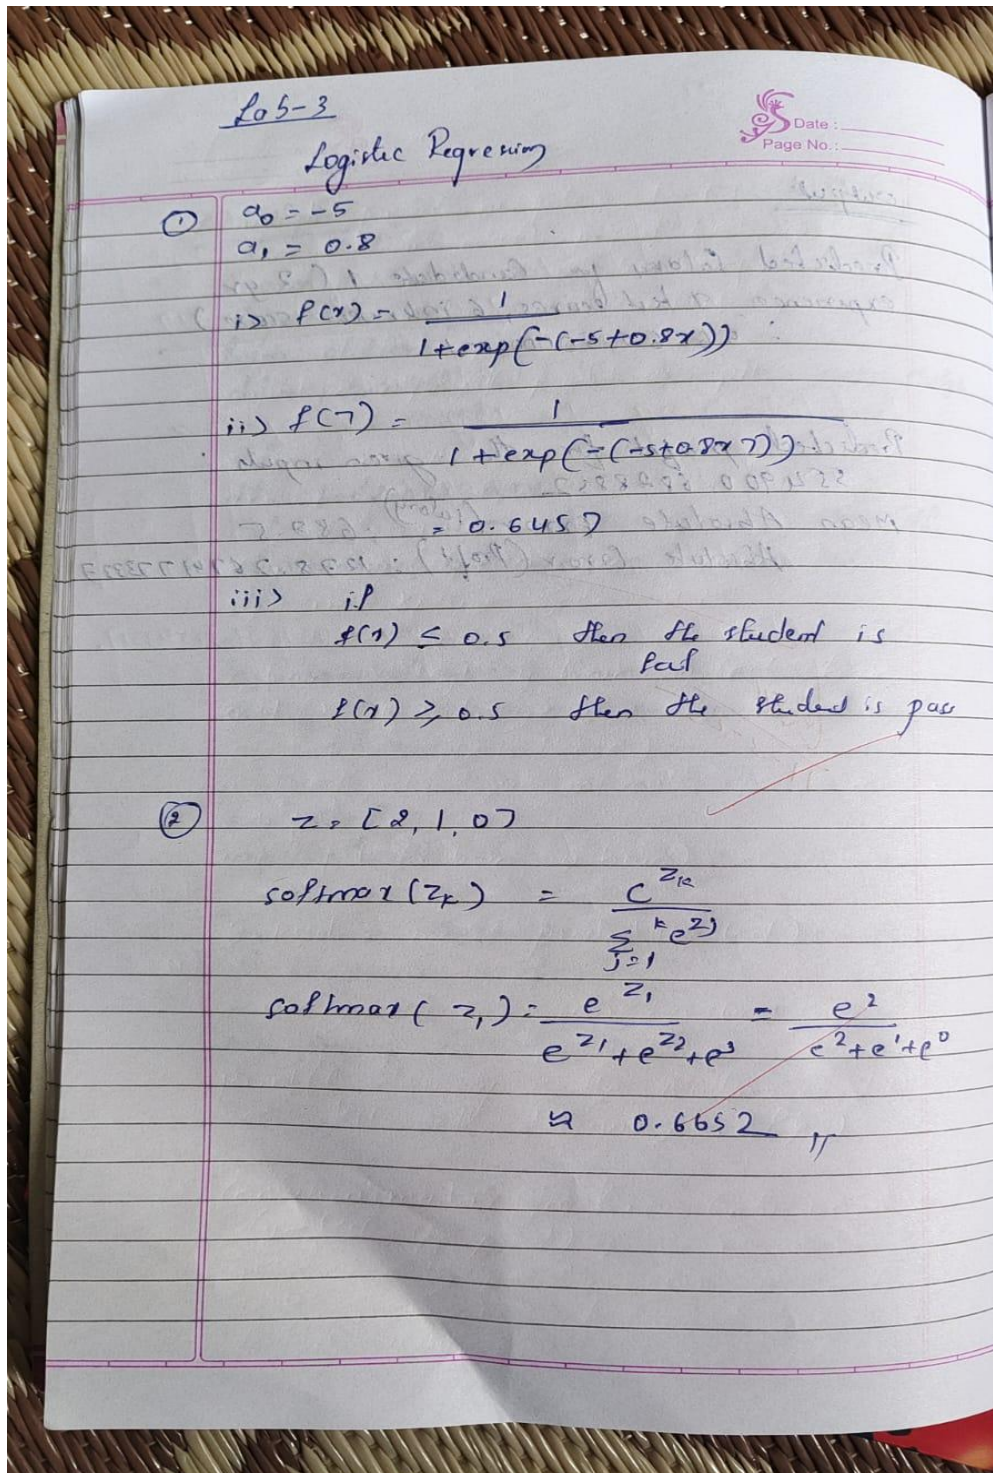 Lab-3
Date :
Page No. :
Logistic Regression
① a₀ = -5
a₁ = 0.8
i> f(x) = 1 / (1+exp(-(-5+0.8x)))
ii> f(7) = 1 / (1+exp(-(-5+0.8x7)))
= 0.6457
iii> if
f(x) ≤ 0.5 then the student is
fail
f(x) ≥ 0.5 then the student is pass
② z = [2, 1, 0]
softmax(Zₖ) = e^Zₖ / Σ_{j=1}^{k} e^Zj
softmax(z₁) = e^Z₁ / (e^Z₁+e^Z₂+e³) = e² / (e²+e¹+e⁰)
≈ 0.6652 //